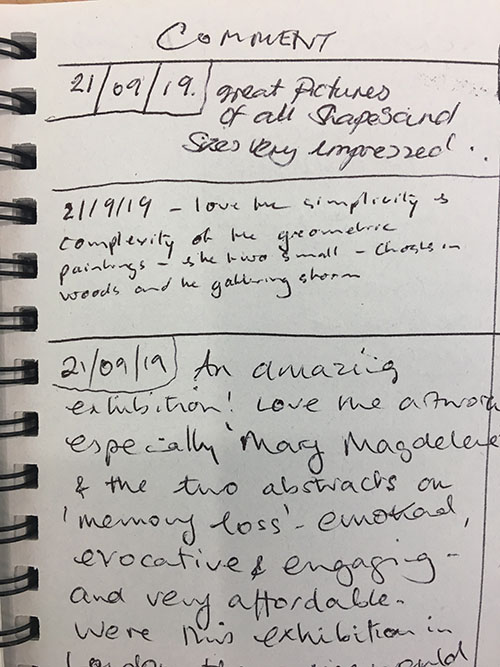 COMMENT
21/09/19. great Pictures
of all Shapes and
Sizes very impressed.
21/9/19 - love the simplicity &
complexity of the geometric
paintings - the two small - Ghosts in
woods and the gathering storm
21/09/19 An amazing
exhibition! Love the artwork
especially 'Mary Magdelene
& the two abstracts on
'memory loss' - emotional,
evocative & engaging -
and very affordable.
Were this exhibition in